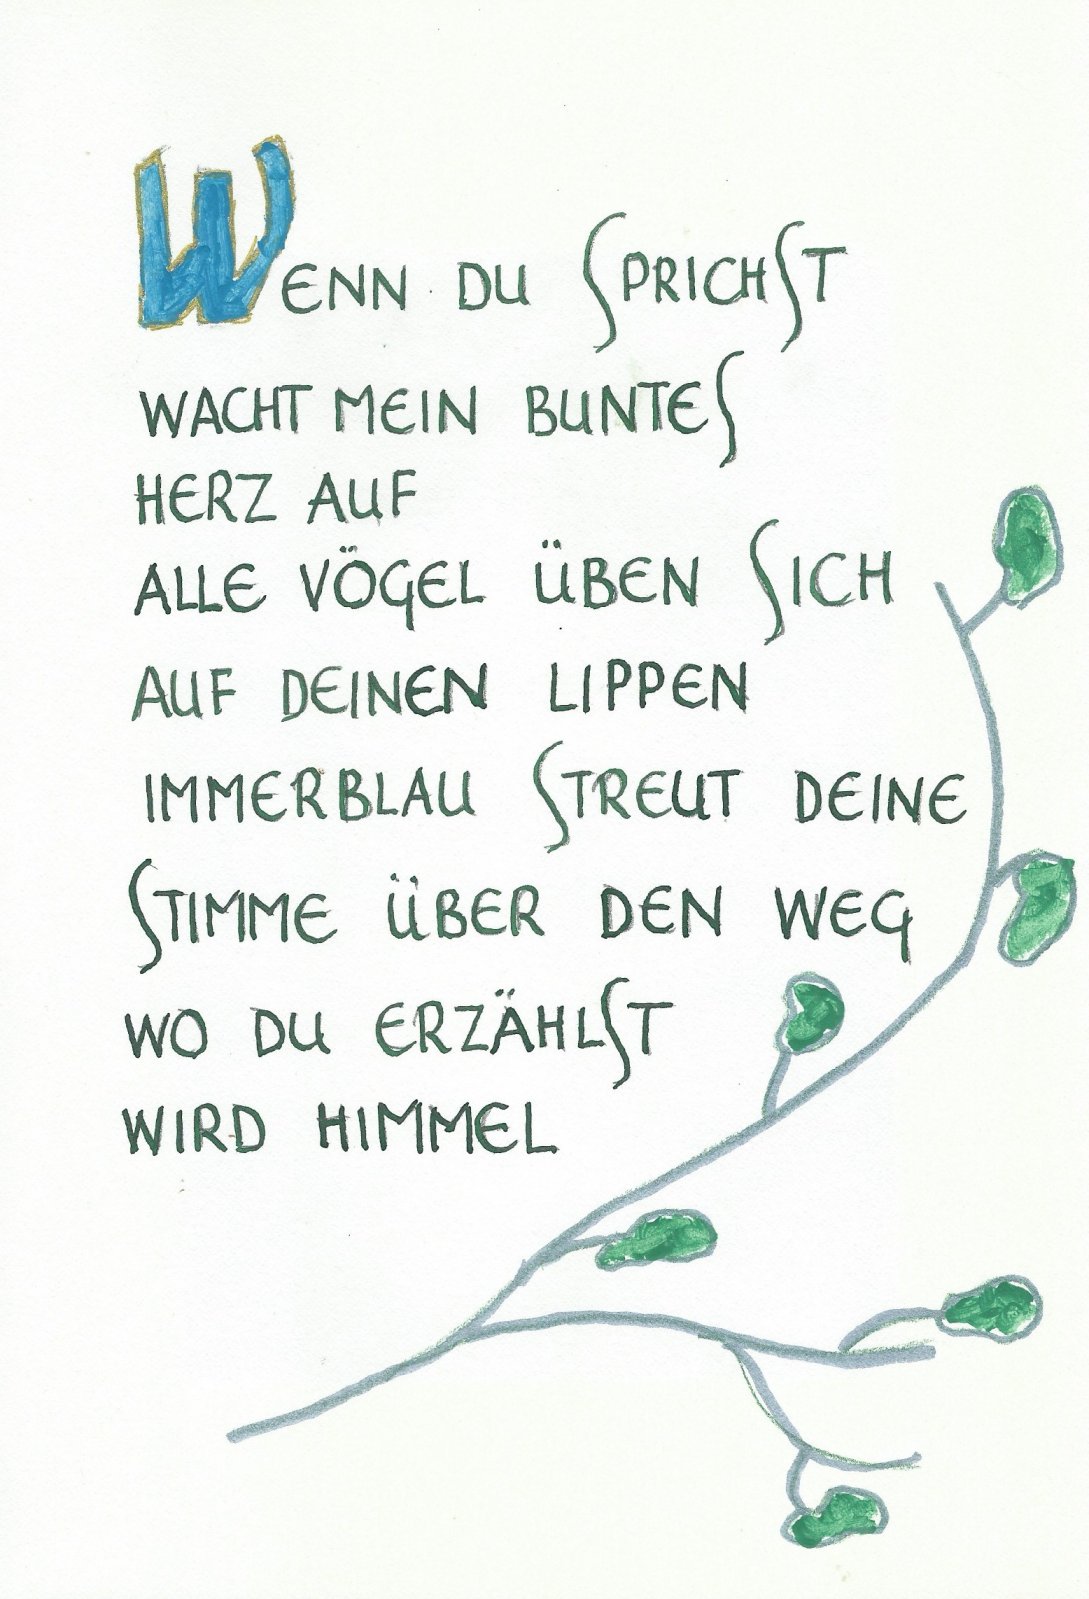 WENN DU SPRICHST
WACHT MEIN BUNTES
HERZ AUF
ALLE VÖGEL ÜBEN SICH
AUF DEINEN LIPPEN
IMMERBLAU STREUT DEINE
STIMME ÜBER DEN WEG
WO DU ERZÄHLST
WIRD HIMMEL